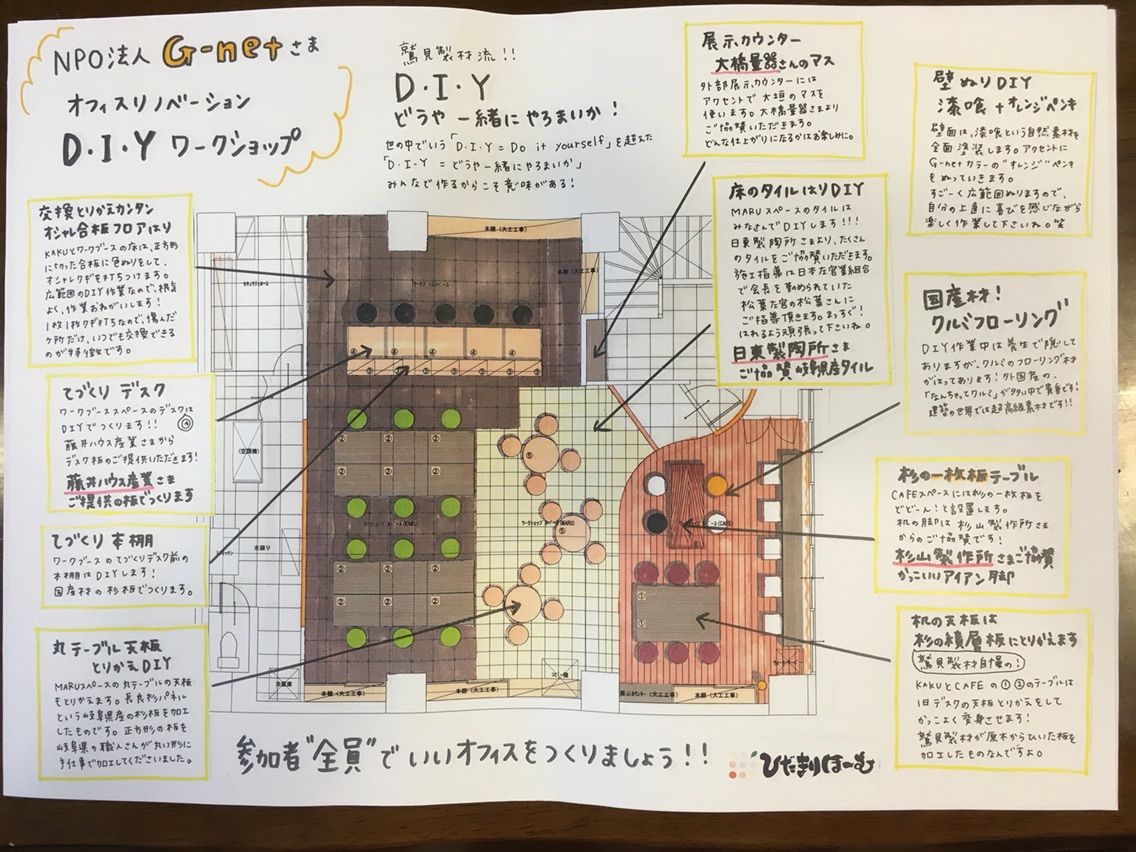 NPO法人 G-netさま
オフィスリノベーション
D・I・Y ワークショップ
鷲見製材流!!
D・I・Y
どうや 一緒にやろまいか!
世の中でいう「D・I・Y = Do it yourself」を超えた
「D・I・Y = どうや一緒にやろまいか」
みんなで作るからこそ意味がある!
展示カウンター
大橋量器さんのマス
外部展示カウンターには
アクセントで大垣のマスを
使います。大橋量器さまより
ご協賛いただきます。
どんな仕上がりになるかはお楽しみに。
壁ぬりDIY
漆喰+オレンジペンキ
壁面は、漆喰という自然素材を
全面塗装します。アクセントに
G-netカラーの"オレンジ"ペンキ
をぬっていきます。
すごーく広範囲ぬりますので、
自分の上達に喜びを感じながら
楽しく作業して下さいね。笑
交換とりかえカンタン
オシャレ合板フロアはり
KAKUとワークブースの床は、正方形
に切った合板に色ぬりをして、
オシャレクギを打ちつけます。
広範囲のDIY作業なので、根気
よく、作業おねがいします!
1枚1枚クギ打ちなので、傷んだ
ケ所だけ、いつでも交換できる
のが特徴です。
床のタイルはりDIY
MARUスペースのタイルは
みなさんでDIYします!!!
日東製陶所さまより、たくさん
のタイルをご協賛いただきます。
施工指導は日本左官業組合
で会長を勤められていた
松葉左官の松葉さんに
ご指導頂きます。まっすぐ!
はれるよう頑張って下さいね。
日東製陶所さま
ご協賛 岐阜県産タイル
国産材!
クルミフローリング
DIY作業中は養生で隠して
ありますが、クルミのフローリング材
がはってあります!外国産の、
「なんちゃってクルミ」が多い中で貴重です!
建築の世界では超高級素材です!!
てづくり デスク
ワークブーススペースのデスクは
DIYでつくります!! ④
藤井ハウス産業さまから
デスク板のご提供いただきます!
藤井ハウス産業さま
ご提供の板でつくります
杉の一枚板テーブル
CAFEスペースには杉の一枚板を
どどん!と設置します。
机の脚は杉山製作所さま
からのご協賛です!
杉山製作所さまご協賛
かっこいいアイアン脚
てづくり本棚
ワークブースのてづくりデスク前の
本棚はDIYします!
国産材の杉板でつくります。
丸テーブル天板
とりかえDIY
MARUスペースの丸テーブルの天板
もとりかえます。長良杉パネル
という岐阜県産の杉板を加工
したものです。正方形の板を
岐阜県の職人さんが丸い形に
手仕事で加工してくださいました。
机の天板は
杉の積層板にとりかえます
鷲見製材自慢の!
KAKUとCAFEの①②のテーブルは
旧デスクの天板とりかえをして
かっこよく変身させます!
鷲見製材が原木からひいた板を
加工したものなんですよ。
本棚(大工工事)
ワークショップ スペース(KAKU)
ワークショップ スペース(MARU)
(空調機)
水廻り
冷蔵庫
本棚(大工工事)
本棚(大工工事)
コピー機
展示カウンター(大工工事)
本棚(大工工事)
参加者"全員"でいいオフィスをつくりましょう!!
ひだまりほーむ